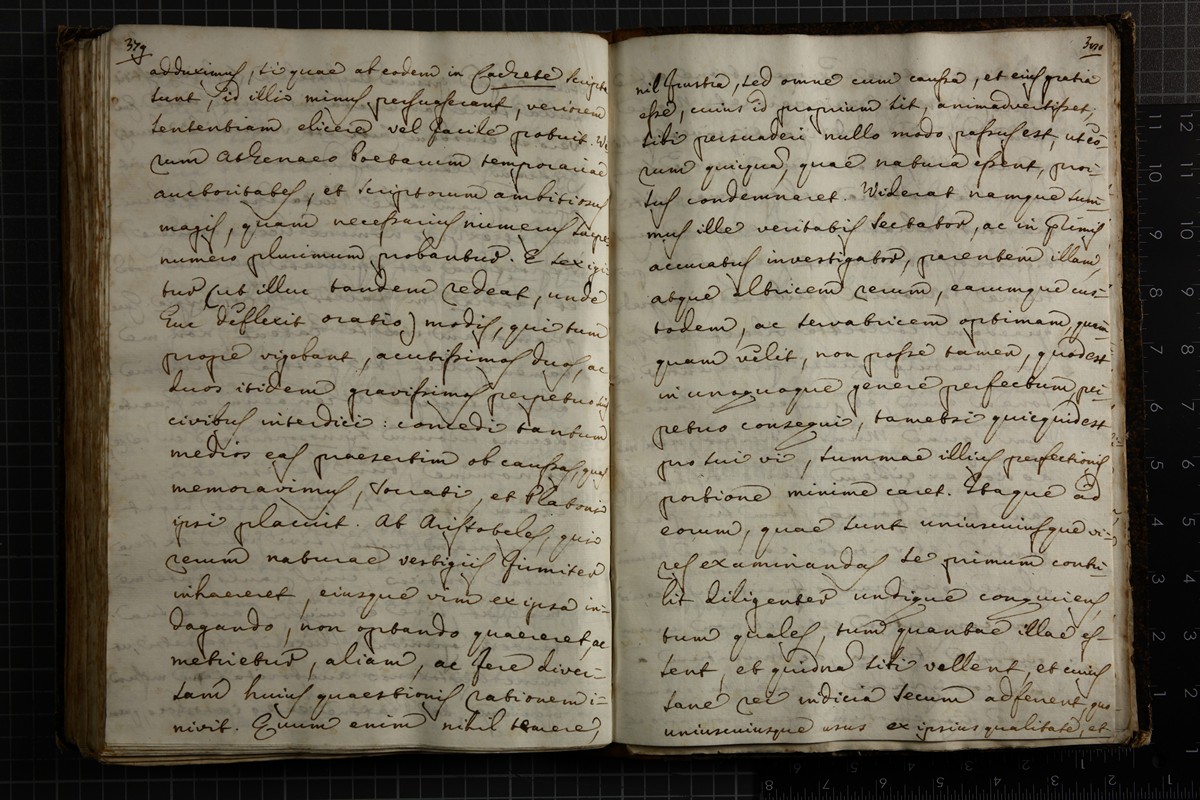 379
adduximus, si quae ab eodem in Lachete scripta
sunt, id illis minus persuaserant, veriorem
sententiam elicere vel facile potuit. Ve
rum Athenaeo Poetarum temporariae
auctoritates, et scriptorum ambitiosus
magis, quam necessarius numerus
numero plurimum probantur. E sex igi
tur (ut illuc tandem redeat, unde
huc deflexit oratio) modis, qui tum
prope vigebant, acutissimos duos, ac
duos itidem gravissimos perpetuo suis
civibus interdici: concedi tantum
medios eas praesertim ob caussas, quas
memoravimus, Socrati, et Platoni
ipsi placuit. At Aristoteles, quis
rerum naturae vestigiis firmiter
inhaereret, eiusque vim ex ipsa in-
dagando, non optando quaereret, ac
metiretur, aliam, ac fere diver-
sam huius quaestionis rationem i-
nivit. Quum enim nihil temere,
380
nil frustra, sed omne cum caussa, et eius gratia
esse, cuius id proprium sit, animadvertisset,
sibi persuaderi nullo modo passus est, ut eo-
rum quicquã, quae natura essent, pror-
sus condemnaret. Viderat namque sum-
mus ille veritatis sectator, ac in primis
accuratus investigator, parentem illam,
atque altricem rerum, eamque cus-
todem, ac servatricem optimam, quam
quam velit, non posse tamen, quod est
in unaquaque genere perfectum per-
petuo consequi, tametsi quicquid est
pro sui vi, summae illius perfectionis
portione minime caret. Itaque ad
eorum, quae sunt uniuscuiusque vi-
res examinandas se primum contu-
lit diligenter undique conquirens,
tum quales, tum quantae illae es-
sent, et quidnã sibi vellent, et cuius
sane rei indicia secum adferrent, quo
uniuscuiusque usus ex ipsius qualitate, et